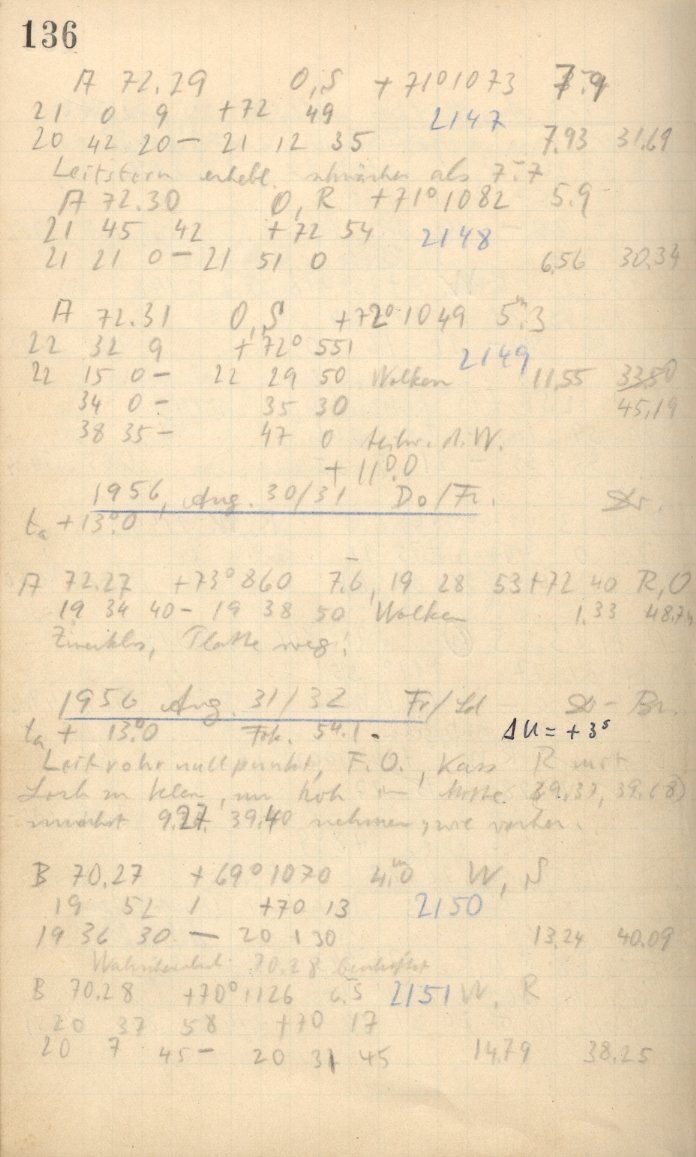 136
A 72.29 O,S +71°1073 7.9
21 0 9 +72 49 2147
20 42 20 – 21 12 35 7,93 31.69
Leitstern erhebl. schwächer als 7.7
A 72.30 O, R +71°1082 5.9
21 45 42 +72 54 2148
21 21 0 – 21 51 0 6,56 30.34
A 72.31 O,S +72°1049 5.3
22 32 9 +72° 551 2149
22 15 0 – 22 29 50 Wolken 11,55 33.50
34 0 – 35 30 45,19
38 35 – 47 0 d. W.
+11°.0
1956, Aug. 30/31 Do/Fr.
ta +13°.0
A 72.27 +73°860 7.6, 19 28 53 +72 40 R,O
19 34 40 – 19 38 50 Wolken 1.33
Zwecklos, Platte weg!
1956 Aug. 31/32 Fr/Sd – Br.
ta + 13°.0 54.1. ΔU = +3s
Leitrohrnullpunkt, F.O., Kass R mit
Loch zu klein, zu hoch 39.37, 39.68)
9.27. 39.40 nehmen, wie vorher.
B 70.27 +69°1070 4m.0 W, S
19 52 1 +70 13 2150
19 36 30 – 20 1 30 13,24 40.09
70.28 belichtet
B 70.28 +70°1126 6.5 2151 W, R
20 37 58 +70 17
20 7 45 – 20 31 45 14.79 38.25